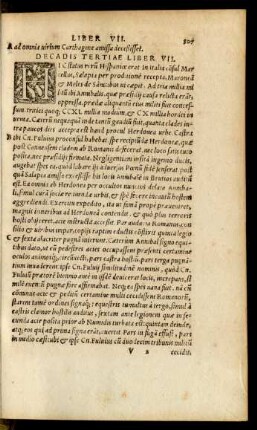 LIBER VII.
ad omnia urbium Carthagine amissa decessisset.
DECADIS TERTIAE LIBER VII.
Hispaniae erat in Italia consul Mar
cellus, Salapia per proditionem recepta, Maronea
& Meles de Samnitibus vi capit. Ad tria millia mi
litum Annibalis, quae praesidij causa relicta erāt,
oppressa. praeda aliquanti eius militi fuit conces-
sum. tritici quoque CCXL millia modium, & CX millia hordei in
venta. Caeterum nequaquam inde tantū gaudiū fuit, quanta clades in-
tra paucos dies accepta est haud procul Herdonea urbe. Castra
ibi Cn. Fulvius proconsul habebat spe recipiendae Herdoneae, quae
post Cannensem cladem ab Romanis defecerat, nec loco satis tuto
posita, nec praesidijs firmata. Negligentiam insitam ingenio ducis,
augebat spes ea, quod labare ijs adversus Poenum fidē senserat, post
quā Salapia amissa excessisse his locis Annibalē in Brutios auditum
est. Ea omnia ab Herdonea per occultos nuncios delata Annibali,
simul curā sociae retinendae urbis, & spē fecere incautum hostem
aggrediendi. Exercitu expedito, ita ut famam prope praeveniret,
magnis itineribus ad Herdoneā contendit, & quo plus terroris
hosti obijceret, acie instructa accessit. Par audacia Romanus, con-
silio & viribus impar, copijs raptim eductis conflixit. quinta legio
& sexta acriter pugnā inierunt. Caeterùm Annibal signo equi-
tibus dato, ut cū pedestres acies occupassent praesenti certamine
oculos animosque, circumvecti, pars castra hostiū, pars terga pugnan
tium invaderent: ipse Cn. Fulvij similitudinē nominis, quod Cn.
Fulvium praetorē biennio ante in ijsdē devicerat locis, increpans, si-
milē eventū pugnae fore affirmabat. Neque ea spes vana fuit. nā cùm
cominus acie & peditum certamine multi cecidissent Romanorū,
starent tamē ordines signaque: equestris tumultus à tergo, simul à
castris clamor hostilis auditus, sextam ante legionem quae in
secunda acie posita prior ab Numidis turbata est: quintam deinde,
atque eos qui ad prima signa erāt, avertit. Pars in fugā effusi, pars
in medio caesi: ubi & ipse Cn. Fulvius cū duodecim tribunis militū
V 2
cecidit.